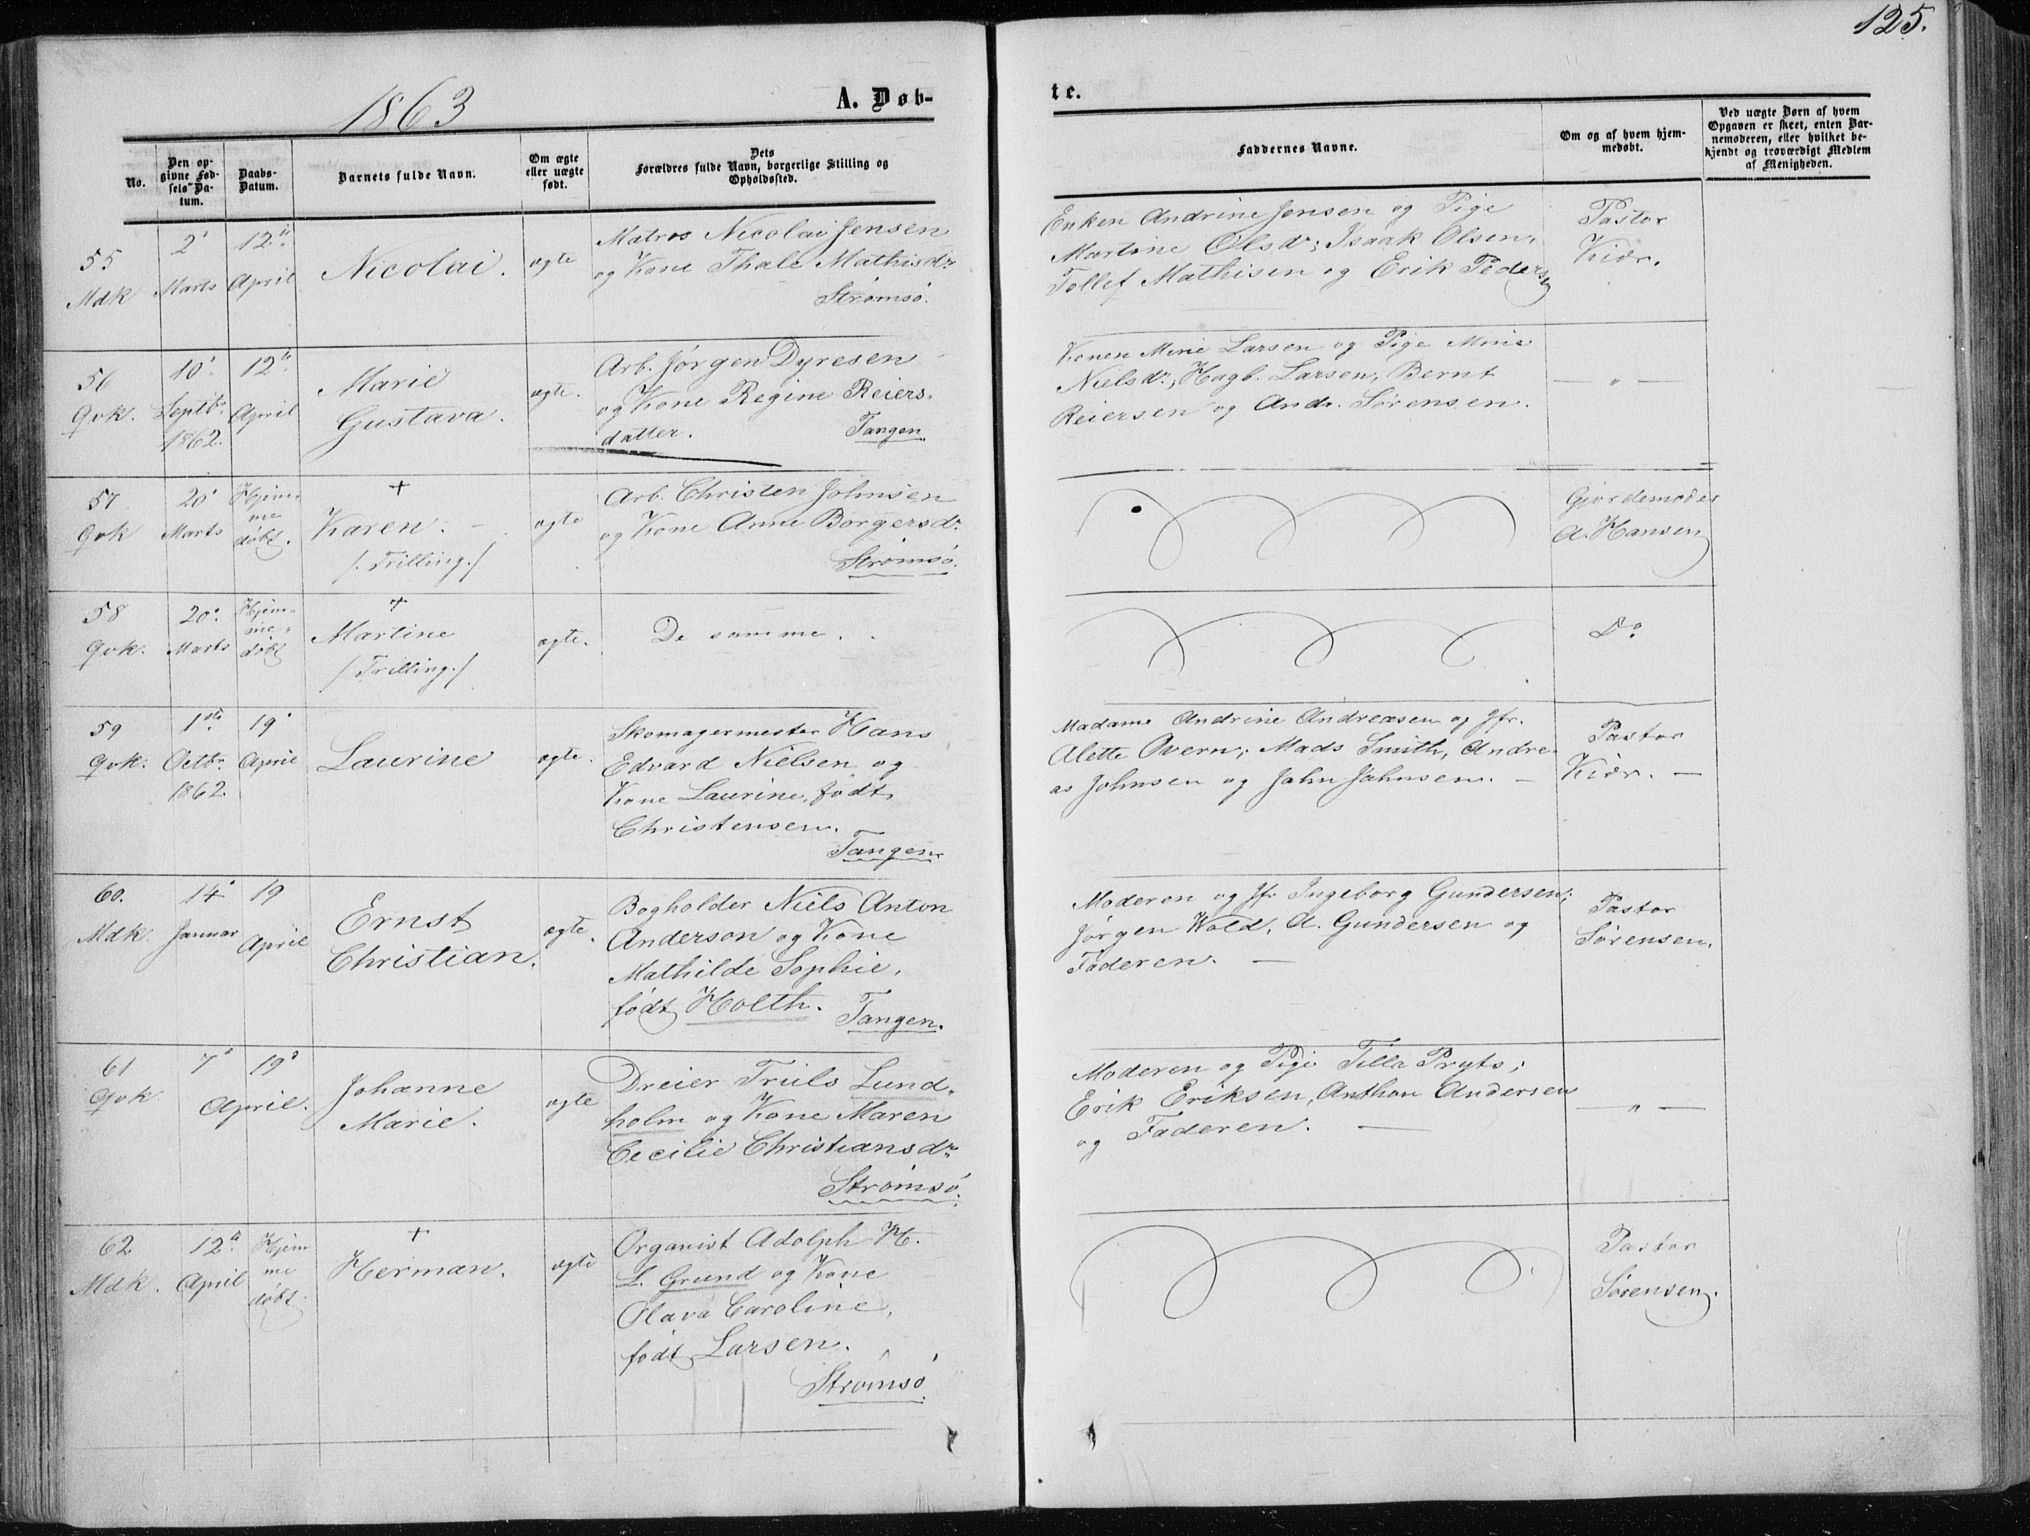 125.
1863
A. Døb-
te.
No.
Den op-
givne Fød-
sels Da-
tum.
Daabs-
Datum.
Barnets fulde Navn.
Om ægte
eller uægte
født.
Dets
Forældres fulde Navn, borgerlige Stilling og
Opholdssted.
Faddernes Navne.
Om og af hvem hjem-
medøbt.
Ved uægte Børn af hvem
Opgaven er skeet, enten Bar-
nemoderen, eller hvilket be-
kjendt og troværdigt Medlem
af Menigheden.
55
Mdk
2'
Marts
12te
April
Nicolai.
ægte
Matros Nicolai Jensen
og Kone Thale Mathisdr
Strømsø.
Enken Andrine Jensen og Pige
Martine Olsdr; Isaak Olsen,
Tollef Mathisen og Erik Pedersen
Pastor
Kiær.
56
Qvk.
10'
Septbr
1862.
12te
April
Marie
Gustava.
ægte.
Arb. Jørgen Dyresen
og Kone Regine Reiers-
datter. Tangen
Konen Mine Larsen og Pige Mina
Nielsdr, Hagb. Larsen, Bernt
Reiersen og Andr. Sørensen.
— " —
57
Qvk
20'
Marts
Hjem-
me
døbt.
+
Karen.
/: Trilling :/
ægte
Arb. Christen Johnsen
og Kone Anne Borgersdr
Strømsø.
Gjordemoder
A. Hansen
58
Qvk.
20'
Marts
Hjem-
me-
døbt
+
Martine
/: Trilling :/
ægte.
De samme.
Do
59
Qvk.
1ste
Octbr
1862.
19'
April
Laurine
ægte.
Skomagermester Hans
Edvard Nielsen og
Kone Laurine, født
Christensen.
Tangen
Madame Andrine Andreasen og Jfr.
Alette Overn; Mads Smith, Andre-
as Johnsen og John Johnsen. —
Pastor
Kiær. —
60.
Mdk.
14'
Januar
19
April
Ernst
Christian.
ægte.
Bogholder Niels Anton
Anderson og Kone
Mathilde Sophie,
født Holth. Tangen.
Moderen og Jfr Ingeborg Gundersen;
Jørgen Wold, A. Gundersen og
Faderen. —
Pastor
Sørensen.
61
Qvk.
7'
April.
19'
Johanne
Marie.
ægte
Dreier Truls Lund-
holm og Kone Maren
Cecilie Christiansdr
Strømsø.
Moderen og Pige Tilla Pryts;
Erik Eriksen, Anthon Andersen
og Faderen. —
— " —
62
Mdk.
12te
April
Hjem
me
døbt.
+
Herman.
ægte
Organist Adolph H.
L. Grund og Kone
Olava Caroline,
født Larsen.
Strømsø
Pastor
Sørensen.